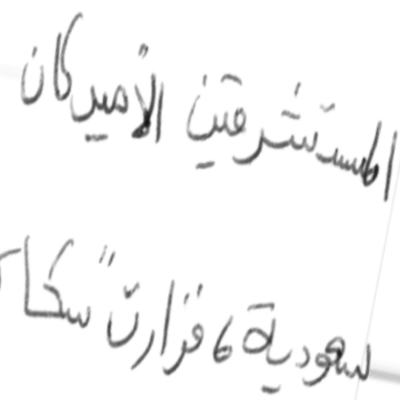 المستشرقين الأميركان
سعودية، فزارت "سكا